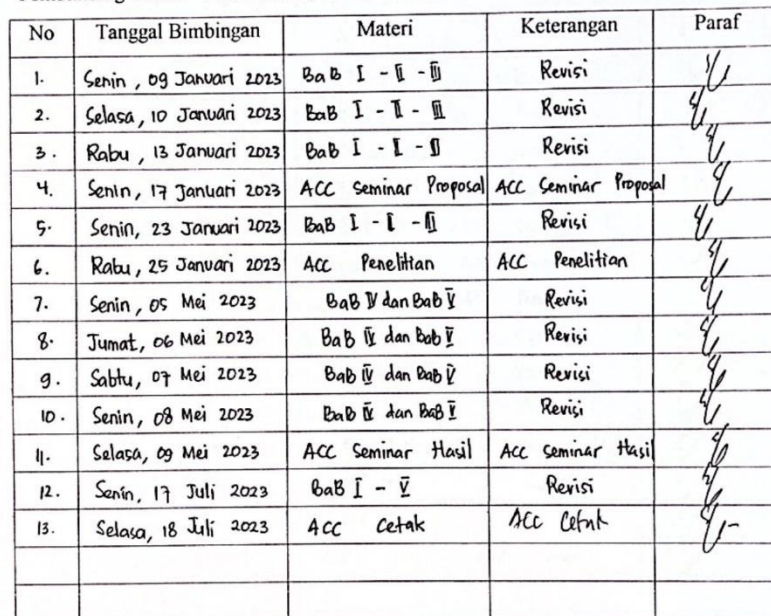 No Tanggal Bimbingan Materi Keterangan Paraf
1. Senin, 09 Januari 2023 BaB I - II - III Revisi
2. Selasa, 10 Januari 2023 BaB I - II - III Revisi
3. Rabu, 13 Januari 2023 BaB I - II - III Revisi
4. Senin, 17 Januari 2023 ACC Seminar Proposal ACC Seminar Proposal
5. Senin, 23 Januari 2023 BaB I - II - III Revisi
6. Rabu, 25 Januari 2023 ACC Penelitian ACC Penelitian
7. Senin, 05 Mei 2023 BaB IV dan BaB V Revisi
8. Jumat, 06 Mei 2023 BaB IV dan Bab V Revisi
9. Sabtu, 07 Mei 2023 BaB IV dan Bab V Revisi
10. Senin, 08 Mei 2023 BaB IV dan BaB V Revisi
11. Selasa, 09 Mei 2023 ACC Seminar Hasil ACC Seminar Hasil
12. Senin, 17 Juli 2023 BaB I - V Revisi
13. Selasa, 18 Juli 2023 ACC Cetak ACC Cetak